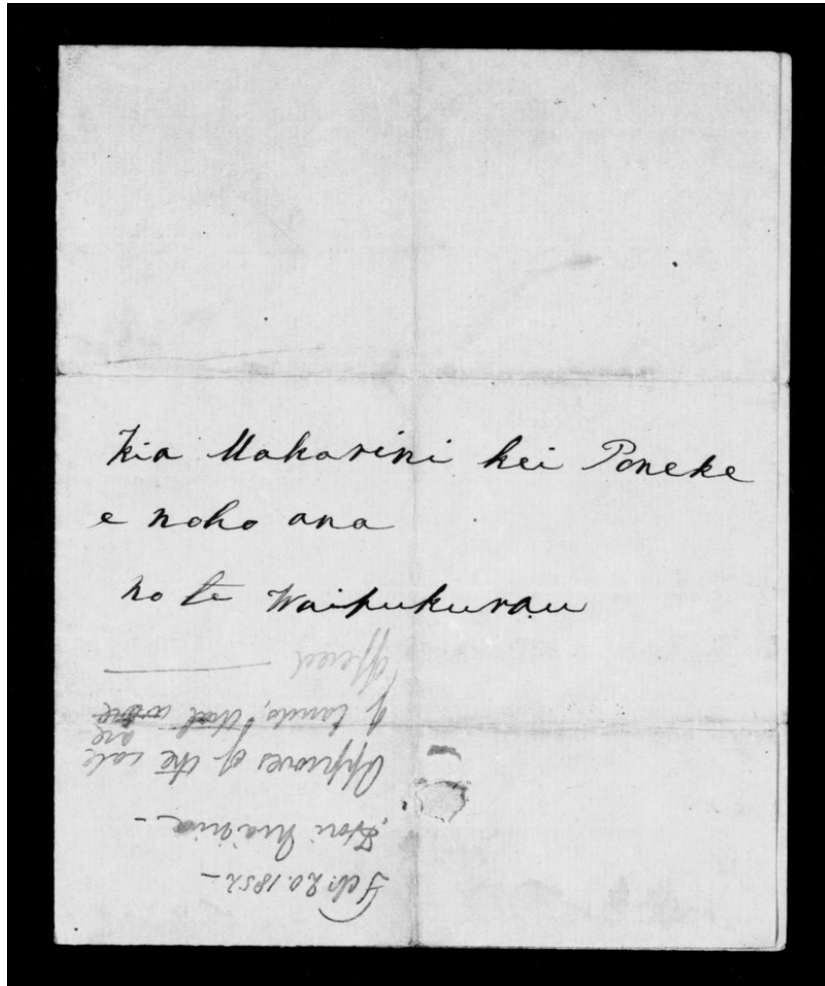 Kia Makarini kei Poneke
e noho ana
no te Waipukurau
Feb. 20. 1852 -
Hori Niania -
Approves of the sale
of lands, that are
offered